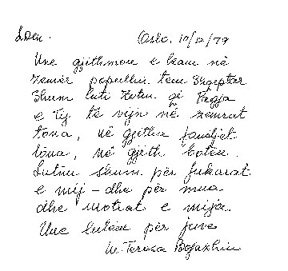 LDM. Oslo. 10/12/79
Une gjithmon e kam në
zemër popullin tem Shqiptar
Shum luti Zotin që Pagja
e Tij të vijn në zemrat
tona, në gjitha familjet
tona, në gjith botën.
Lutniu shum për fukarat
e mij – dhe për mua
dhe motrat e mija.
Une lutem për juve
M. Teresa Bojaxhiu